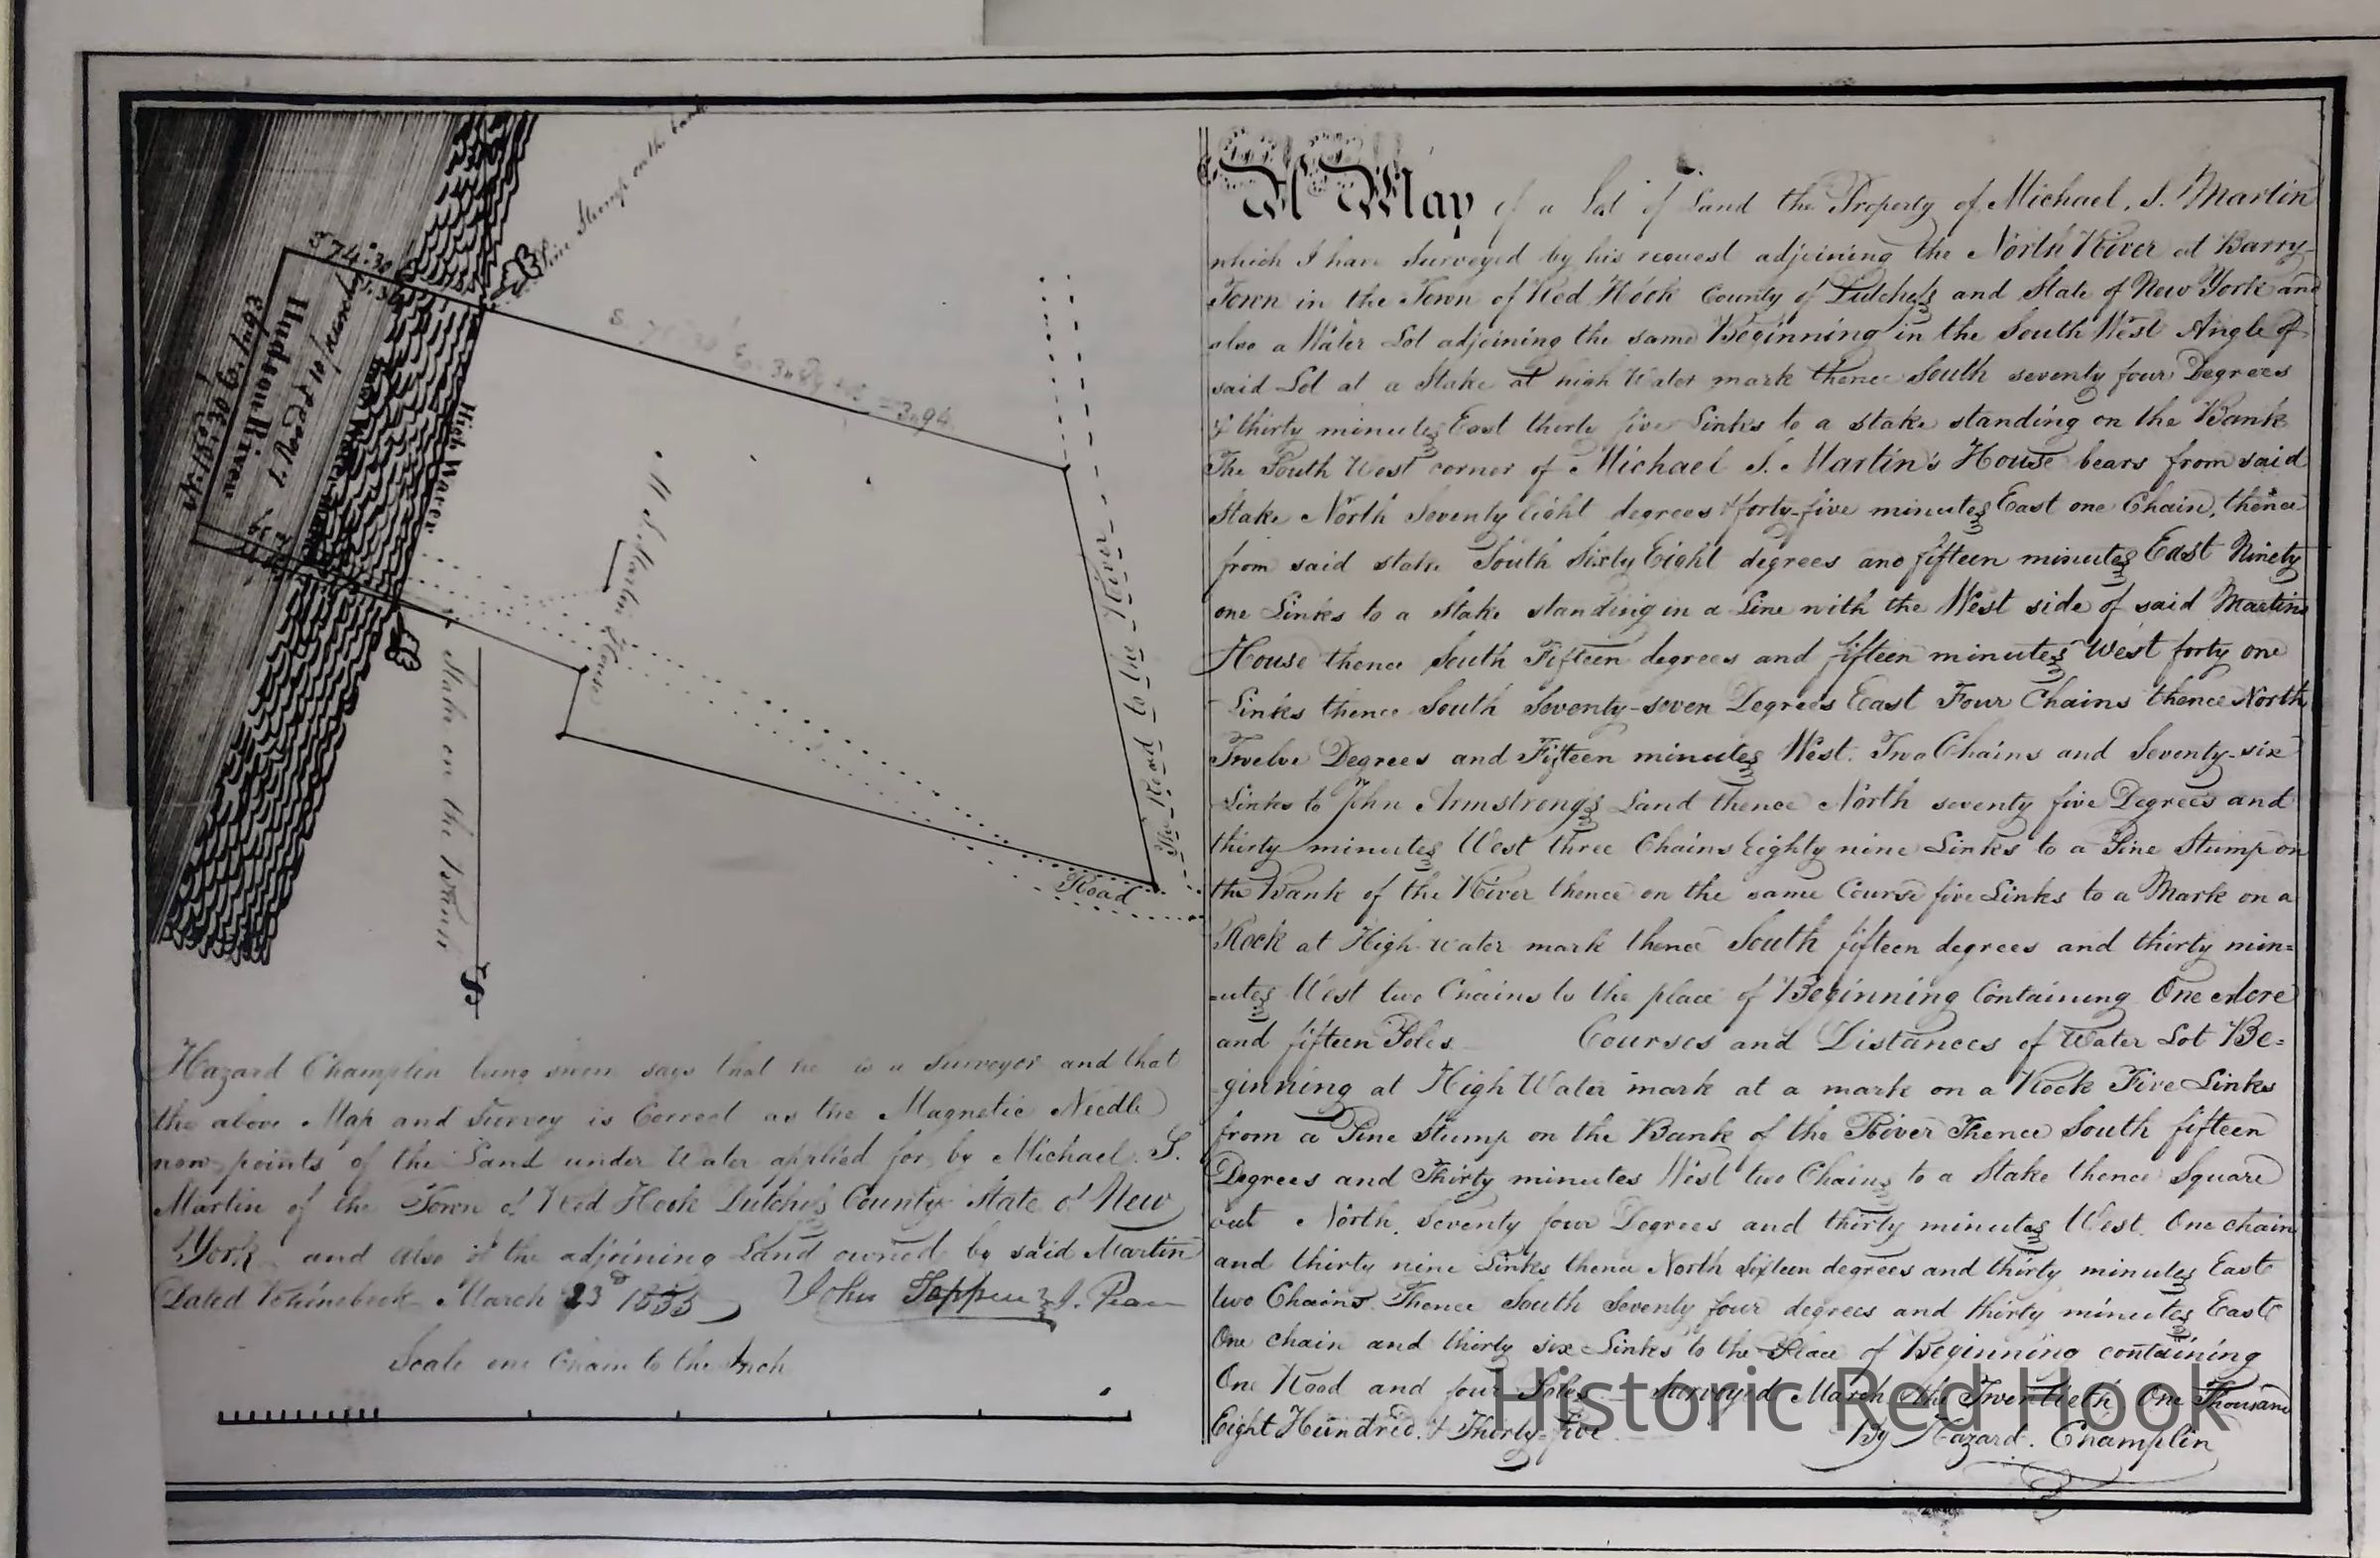 A Map of a Lot of Land the Property of Michael. S. Martin
which I have Surveyed by his request adjoining the North River at Barry-
Town in the Town of Red Hook County of Dutchess and State of New York and
also a Water Lot adjoining the same Beginning in the South West Angle of
said Lot at a Stake at high Water mark thence South seventy four Degrees
& thirty minutes East thirty five Links to a stake standing on the Bank
The South West corner of Michael S. Martin's House bears from said
Stake North Seventy Eight degrees & forty-five minutes East one Chain, thence
from said stake South Sixty Eight degrees and fifteen minutes East Ninety
one Links to a Stake standing in a Line with the West side of said Martins
House thence South Fifteen degrees and fifteen minutes West forty one
Links thence South Seventy-seven Degrees East Four Chains thence North
Twelve Degrees and Fifteen minutes West. Two Chains and Seventy-six
Links to John Armstrongs Land thence North seventy five Degrees and
thirty minutes West three Chains Eighty nine Links to a Pine Stump on
the Bank of the River thence on the same Course five Links to a Mark on a
Rock at High water mark thence South fifteen degrees and thirty min=
-utes West two Chains to the place of Beginning Containing One Acre
and fifteen Poles Courses and Distances of Water Lot Be=
ginning at High Water mark at a mark on a Rock Five Links
from a Pine Stump on the Bank of the River Thence South fifteen
Degrees and Thirty minutes West two Chains to a Stake thence Square
out North, Seventy four Degrees and thirty minutes West. One chain
and thirty nine Links thence North Sixteen degrees and thirty minutes East
two Chains. Thence South Seventy four degrees and thirty minutes East
One chain and thirty six Links to the Place of Beginning containing
One Rood and four Poles. Surveyed March the Twentieth One Thousand
Eight Hundred. & Thirty-five
By Hazard. Champlin
Pine Stump on the bank
S 74:30
Hudson River
High Water
Low Water
= 3.94
M. S. Martin House
The Road to the River
Road
Stake on the Bank
Hazard Champlin being sworn says that he is a Surveyor and that
the above Map and Survey is Correct as the Magnetic Needle
now points of the Land under Water applied for by Michael. S.
Martin of the Town of Red Hook Dutchess County State of New
York and also of the adjoining Land owned by said Martin
Dated Rhinebeck March 23d 1835 John Tappen
Scale one Chain to the Inch
Historic Red Hook